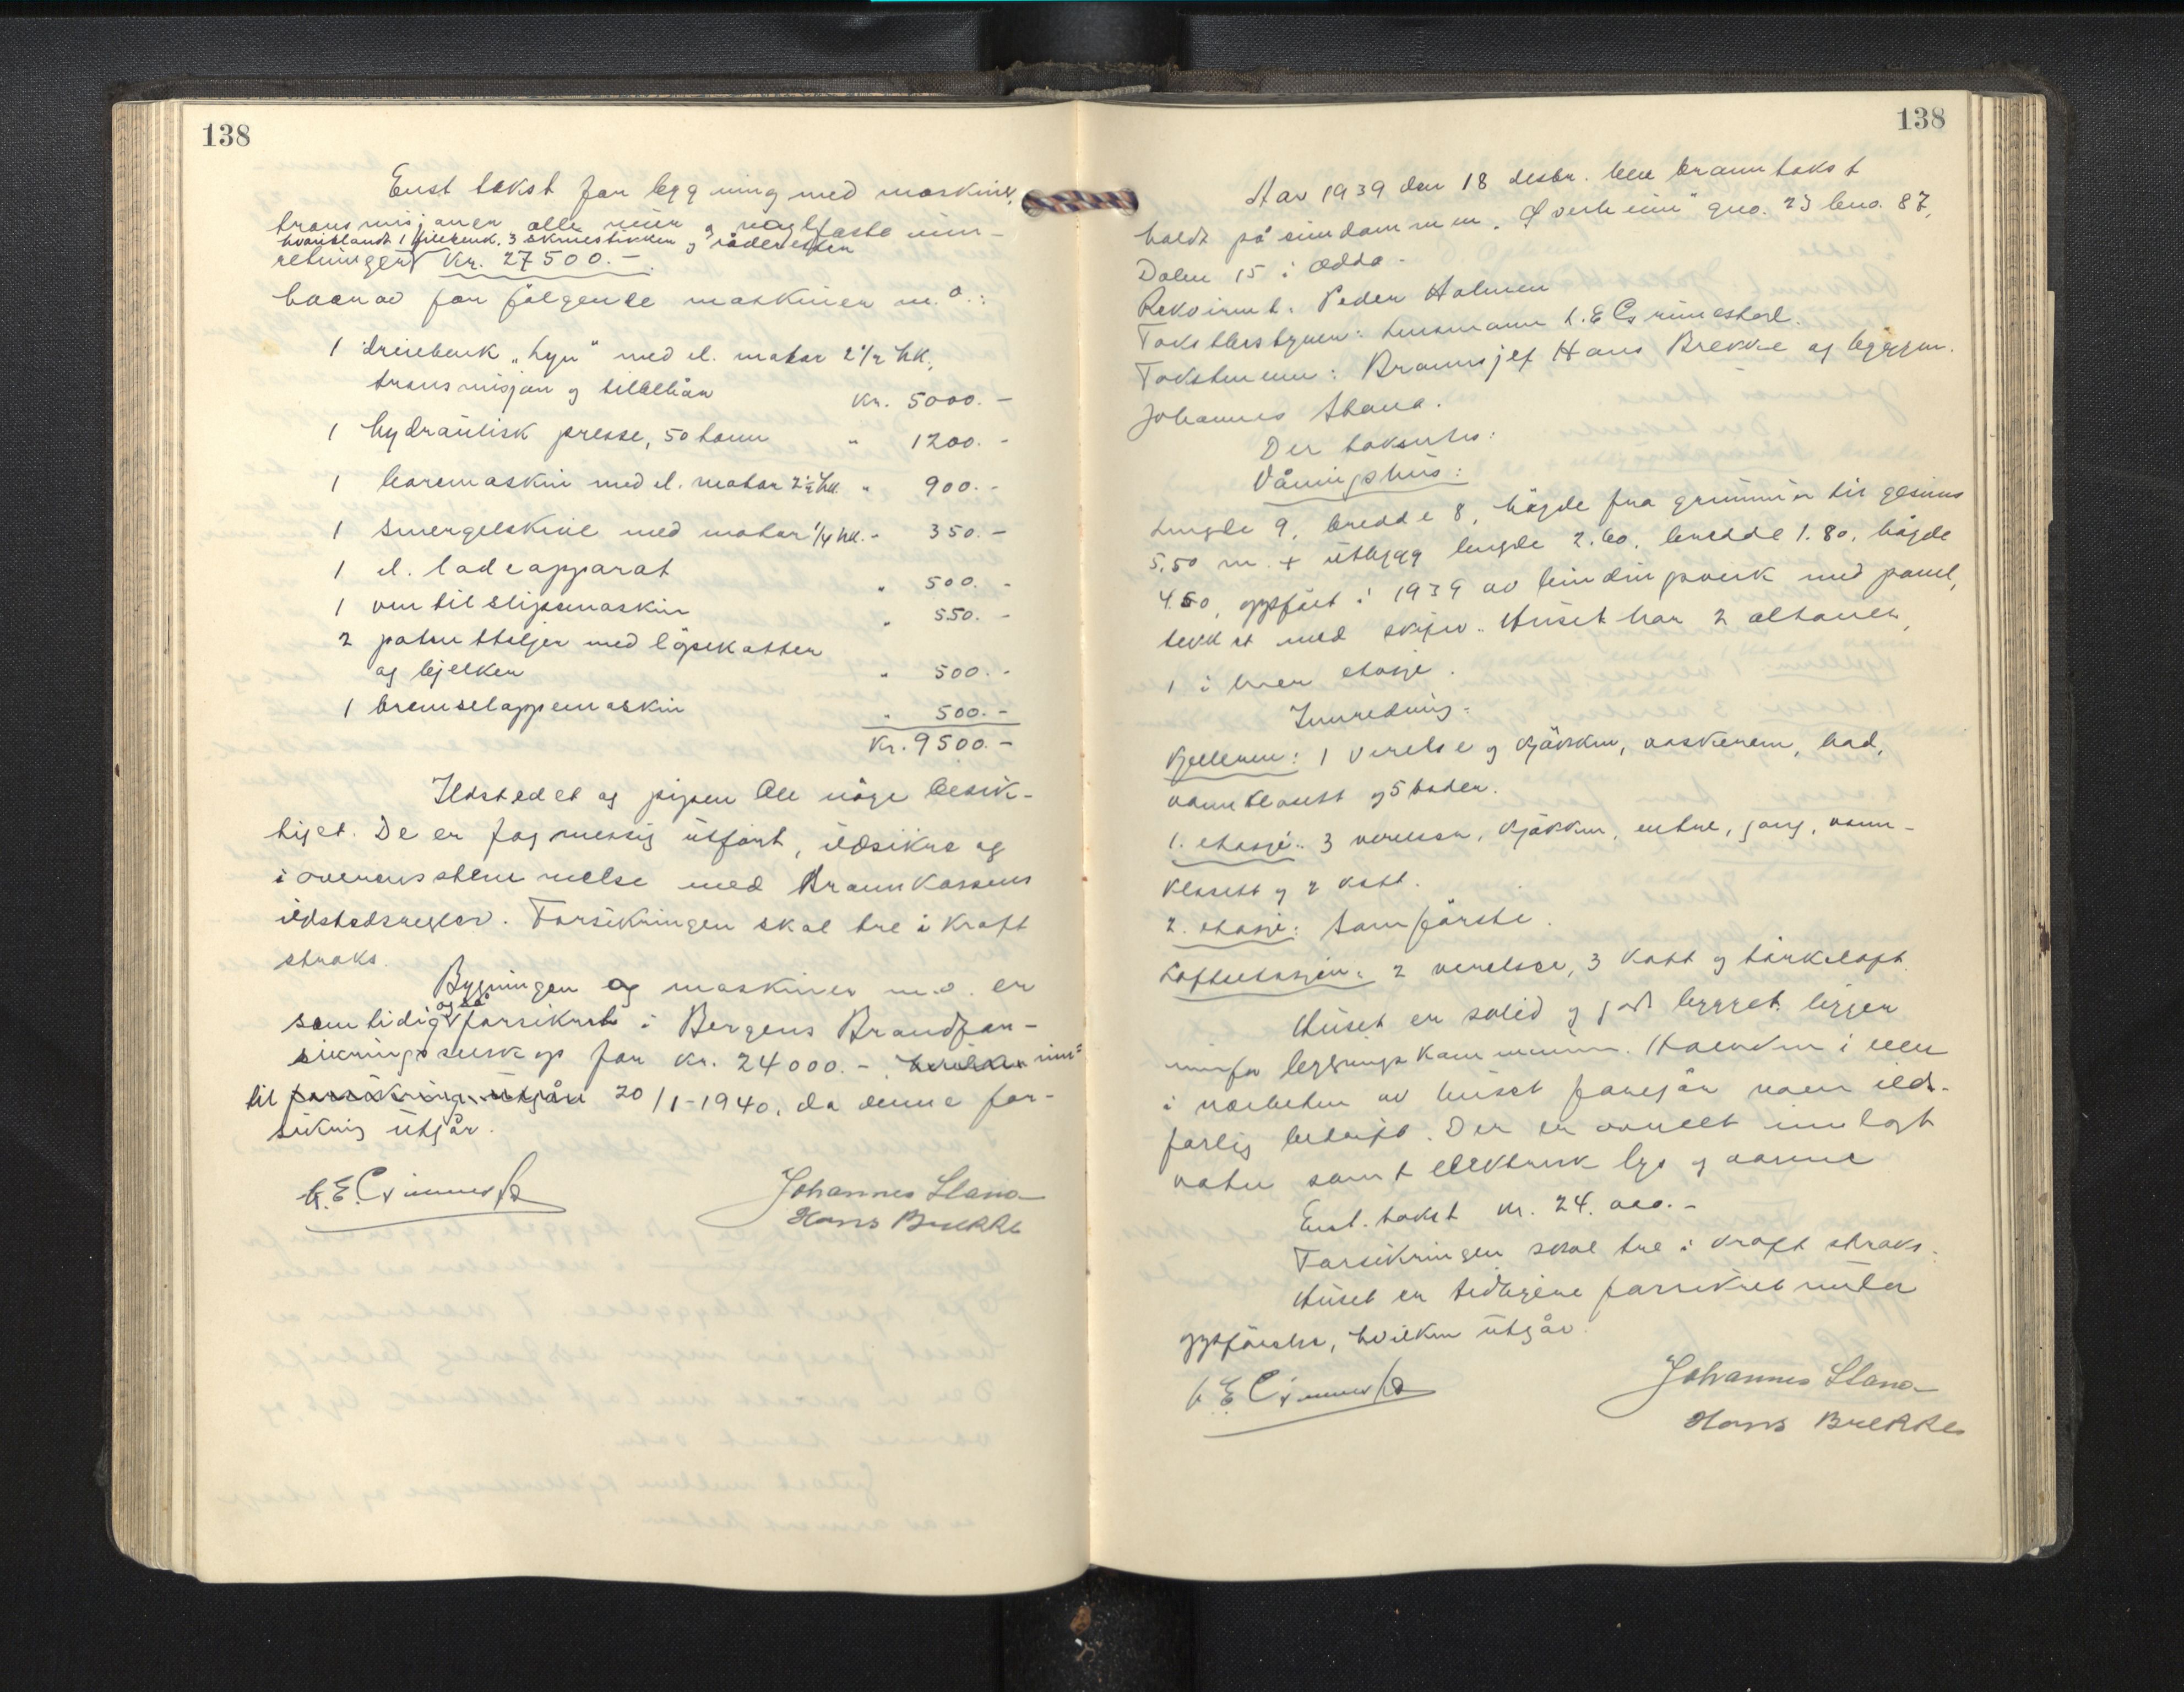 138
Enst. takst for bygning med maskiner,
transmisjoner alle mur og naglfaste inn-
hvoriblandt 1 filebenk, 3 skruestikker og
retninger kr. 27500.-
hvorav for følgende maskiner m.o.:
1 dreiebenk „Lyn" med el. motor 2 1/2 hk.,
transmisjon og tilbehør kr. 5000.-
1 hydraulisk presse, 50 tonn " 1200.-
1 boremaskin med el. motor 2 1/2 hk. " 900.-
1 smergelskive med motor 1/4 hk. " 350.-
1 el. ladeapparat " 500.-
1 ventilslipemaskin " 550.-
2 patenttaljer med löpekatter
og bjelker " 500.-
1 bremselappemaskin " 500.-
Kr. 9500.-
Ildstedet og pipen ble nöye besik-
tiget. De er fagmessig utfört, ildsikre og
i overensstemmelse med Brannkassens
ildstedsregler. Forsikringen skal tre i kraft
straks.
Bygningen og maskiner m.o. er
også
samtidig forsikret i Bergens Brandfor-
sikringsselskap for kr. 24000.- inn-
til forsikring utgår 20/1-1940, da denne for-
sikring utgår.
Johannes Stana
Hans Brekke
138
Aar 1939 den 18 desbr. ble branntakst
holdt på eiendommen „Solheim" gno. 23 bno. 87,
Dalen 15 i Odda.
Rekvirent: Peder Holmen
Takstbestyrer: Lensmann L. E. Grimestad.
Takstmenn: Brannsjef Hans Brekke og byggm.
Johannes Stana.
Der takseres:
Våningshus:
Lengde 9, bredde 8, högde fra grunnmur til gesims
5.50 m. + utbygg lengde 2.60, bredde 1.80, högde
4.50, oppfört i 1939 av bindingsverk med panel,
tekket med skifer. Huset har 2 altaner,
1 i hver etasje.
Innredning:
Kjelleren: 1 verelse og kjökken, vaskerom, bad,
vannklosett og 5 boder.
1. etasje: 3 verelser, kjökken, entre, gang, vann-
klosett og 2 kott.
2. etasje: Som förste.
Loftetasjen: 2 verelser, 3 kott og törkeloft.
Huset er solid og godt bygget, ligger
innfor bygningskommunen. Hverken i eller
i nærheten av huset foregår noen ild-
farlig bedrift. Der er overalt innlagt
vatn samt elektrisk lys og varme
Enst. takst kr. 24.000.-
Forsikringen skal tre i kraft straks.
Huset er tidligere forsikret under
oppförelse, hvilken utgår.
Johannes Stana
Hans Brekke